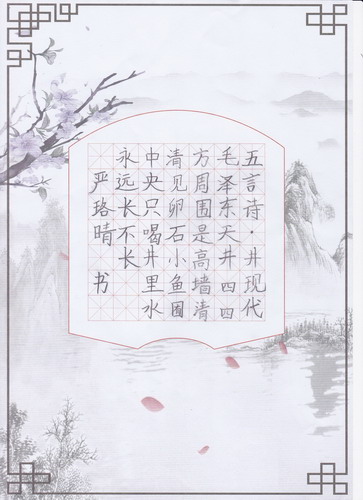 五言诗·井现代
毛泽东天井四四
方周围是高墙清
清见卵石小鱼囿
中央只喝井里水
永远长不长
严珞晴 书